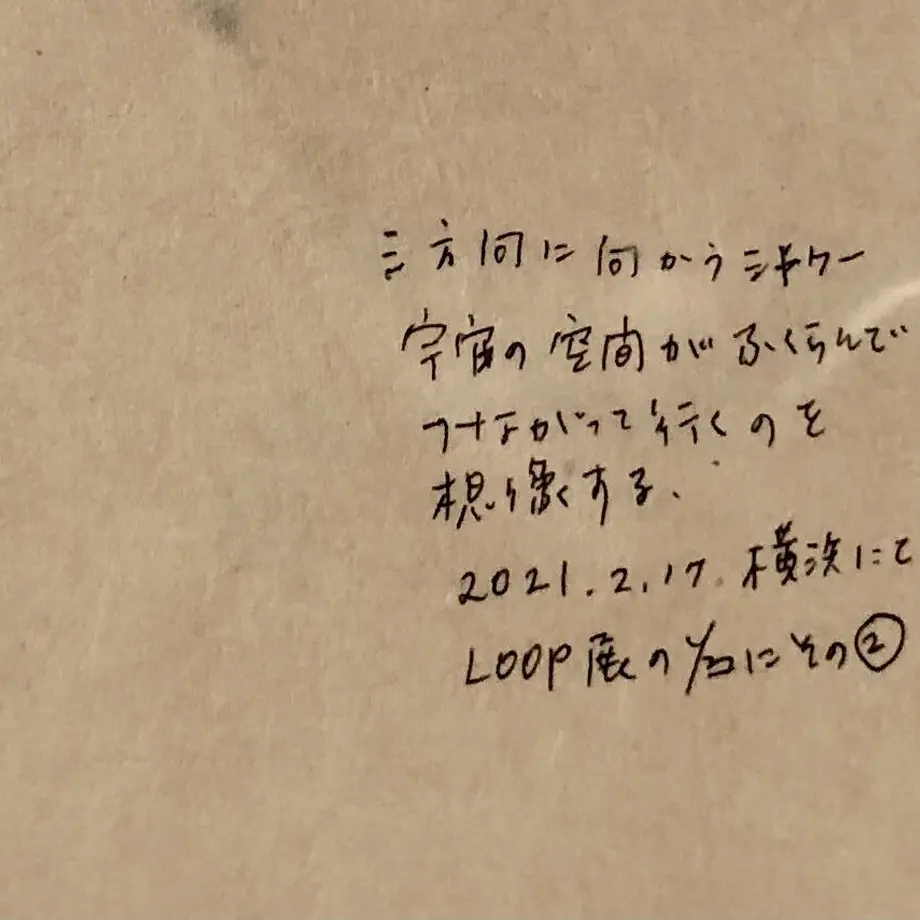 三方向に向かうシャワー
宇宙の空間がふくらんで
つながって行くのを
想像する、
2021.2.17. 横浜にて
LOOP展の為にその②